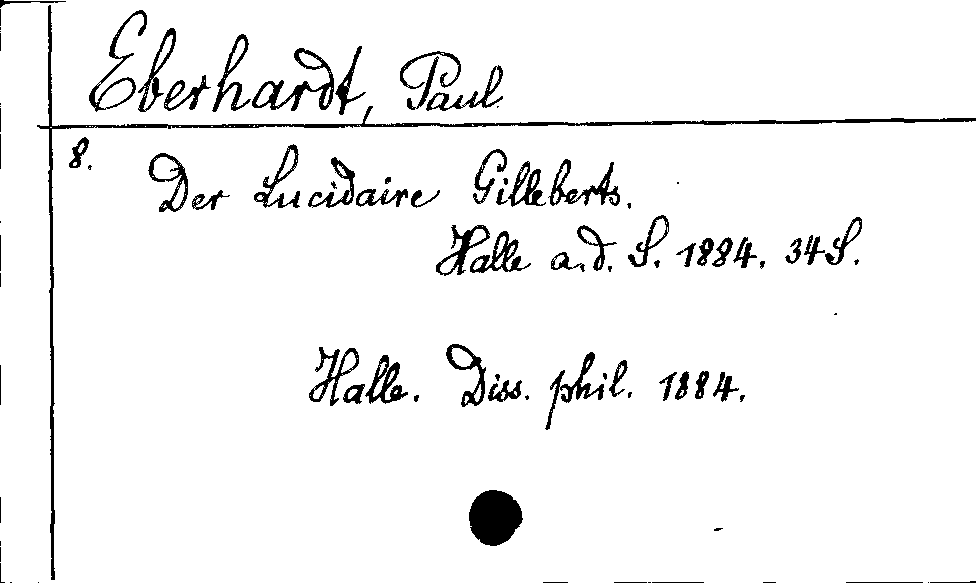 Eberhardt, Paul
8.
Der Lucidaire Gilleberts.
Halle a.d. S. 1884. 34 S.
Halle. Diss. phil. 1884.